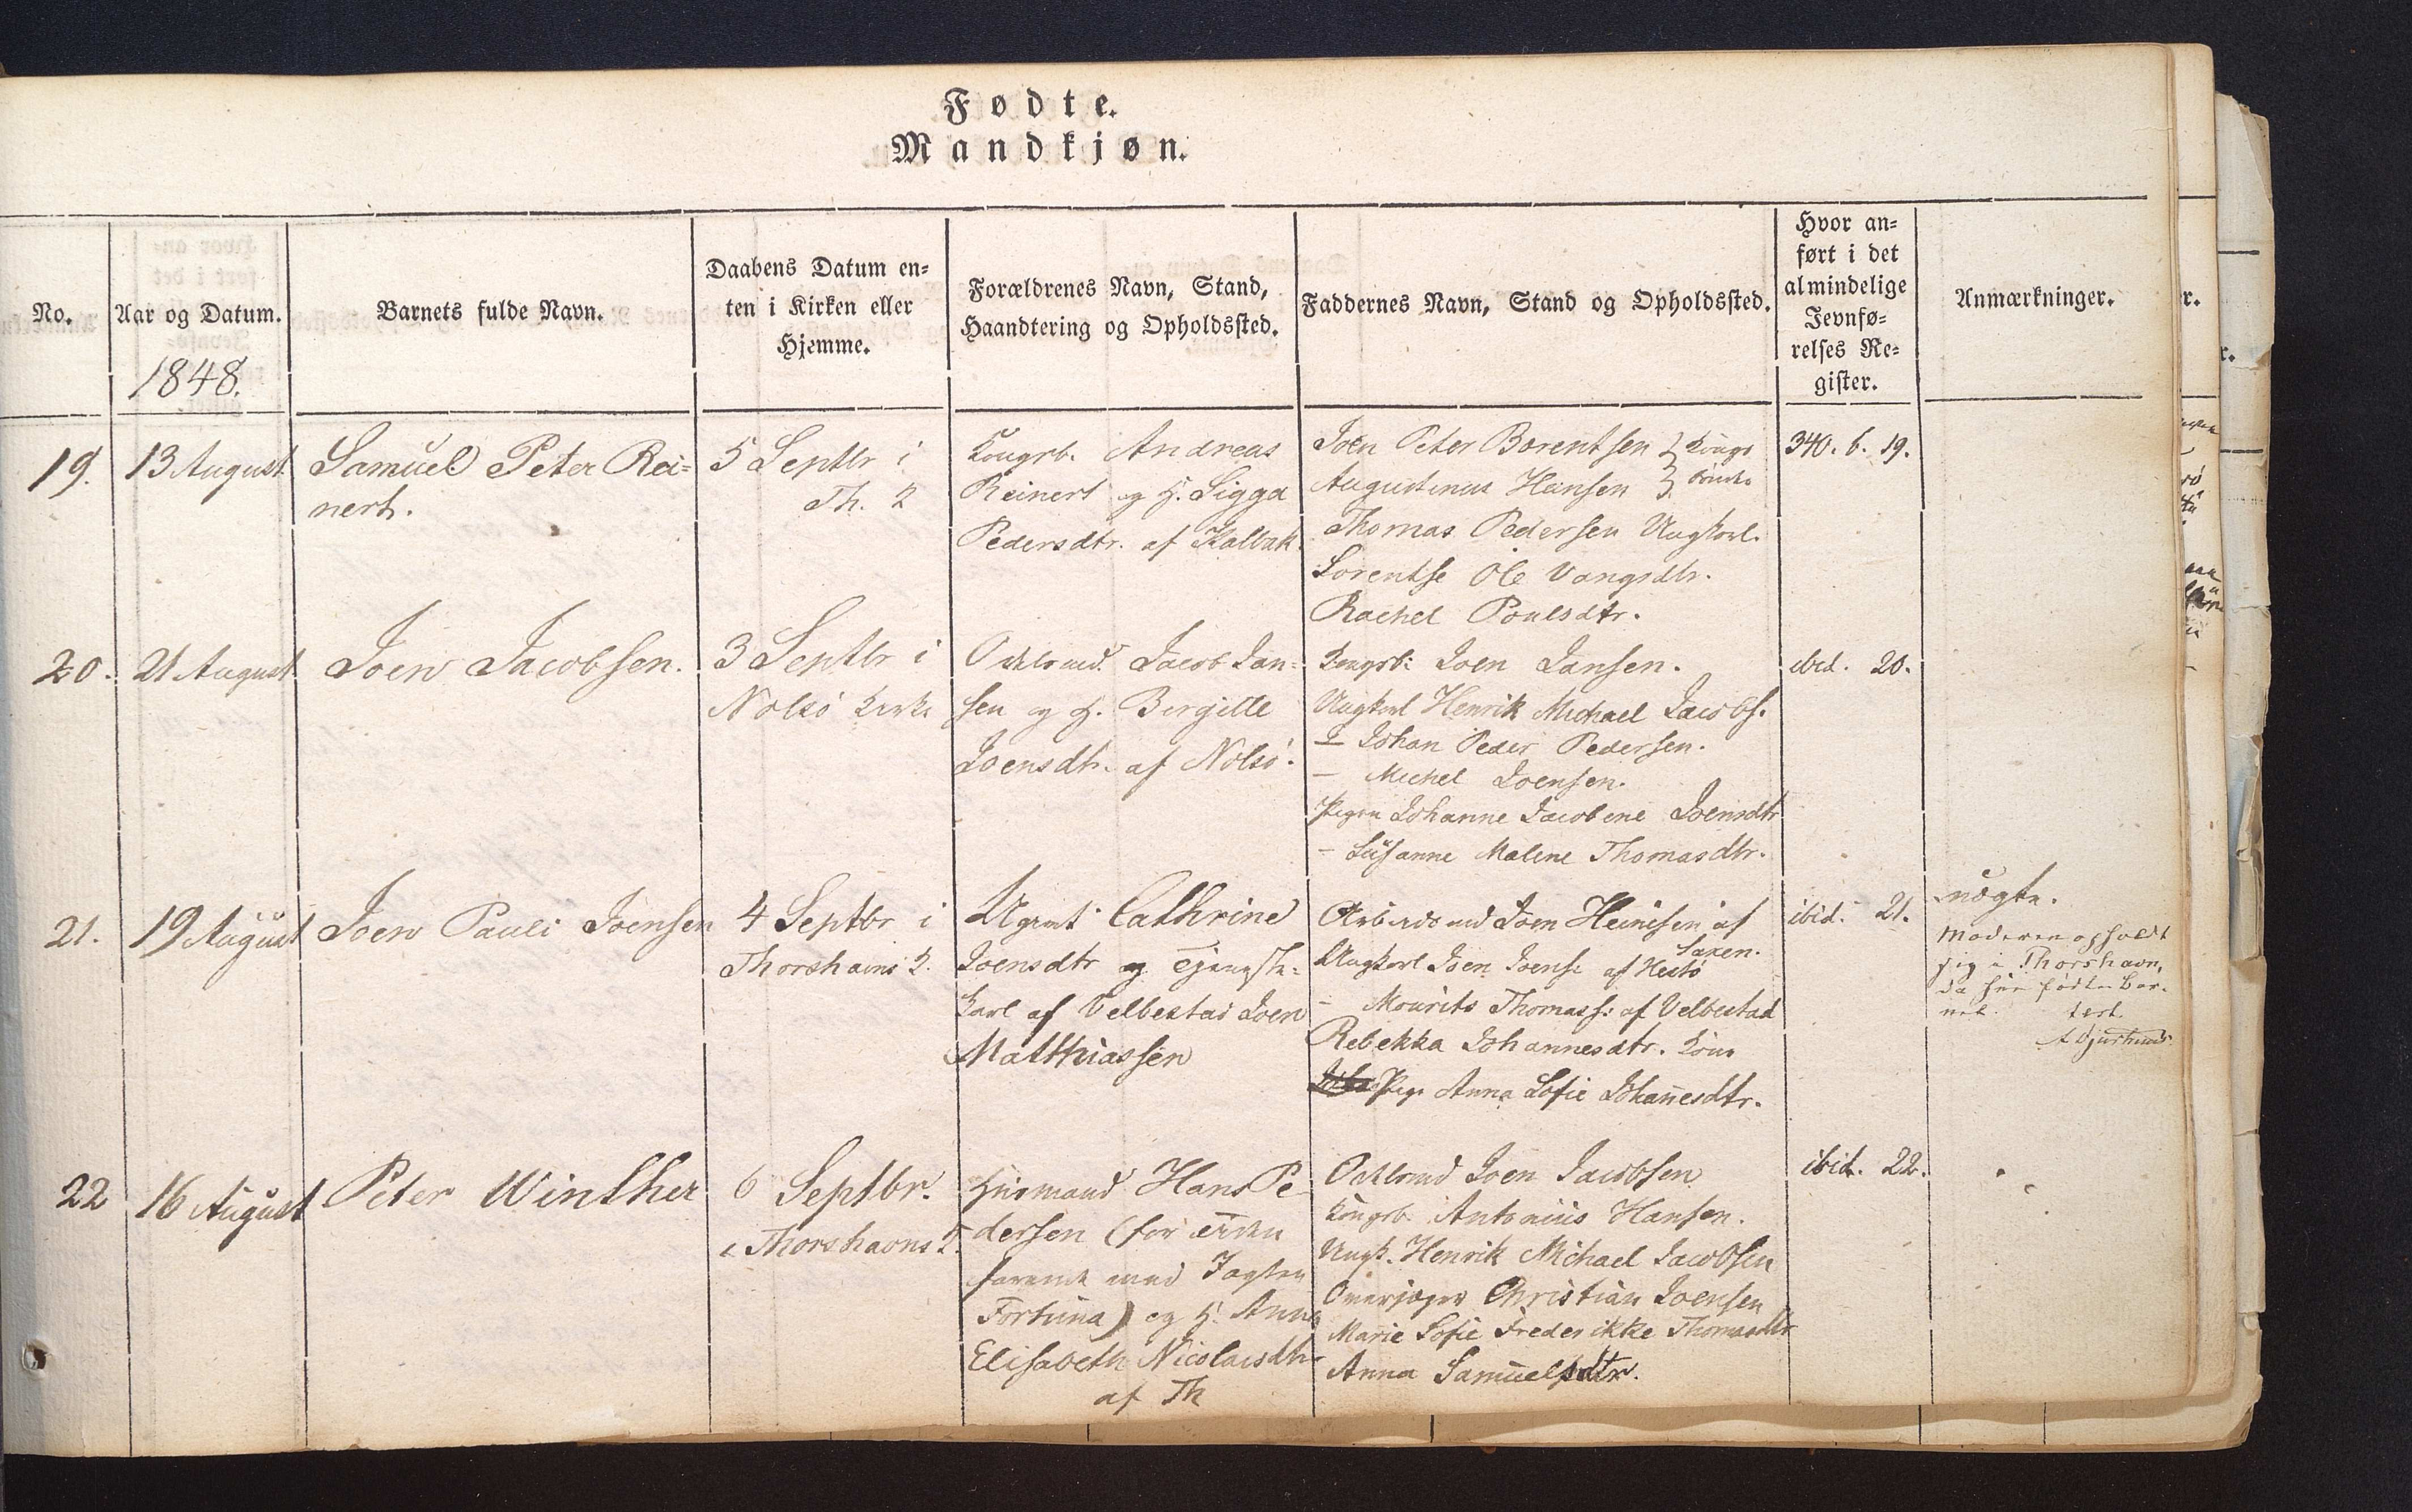 Fødte.
Mandkjøn.
No.
Aar og Datum.
1848.
Barnets fulde Navn.
Daabens Datum en-
ten i Kirken eller
Hjemme.
Forældrenes Navn, Stand,
Haandtering og Opholdssted.
Faddernes Navn, Stand og Opholdssted.
Hvor an-
ført i det
almindelige
Jevnfø-
relses Re-
gister.
Anmærkninger.
19.
13 August
Samuel Peter Rei-
nert.
5 Septbr i
Th. K
Kongsb. Andreas
Reinert og H. Sigga
Pedersdtr. af Kalbak.
Joen Peter Borentsen } Kongs
Augustinus Hansen } bønder
Thomas Pedersen Ungkarl.
Sorentse Ole Vangsdtr.
Rachel Poulsdtr.
340. b. 19.
20.
21 August
Joen Jacobsen.
3 Septbr i
Nolsö Kirke
Odelsmd. Jacob Jan-
sen og H. Birgitte
Joensdtr. af Nolsö.
Kongsb: Joen Jansen.
Ungkarl Henrik Michael Jacobs.
- Johan Peder Pedersen.
- Michel Joensen.
Pigen Johanne Jacobene Joensdtr
- Susanne Malene Thomasdtr.
ibid. 20.
21.
19 August
Joen Pauli Joensen
4 Septbr i
Thorshavns K.
Ugivt Cathrine
Joensdtr og Tjeneste-
karl af Velbestad Joen
Matthiassen
Arbeidsmd Joen Heinesen af
Saxen.
Ungkarl Joen Joens: af Hestö
- Mourits Thomass: af Velbestad
Rebekka Johannesdtr. Kone
Pige Anna Sofie Johannesdtr.
ibid. 21.
uægte.
Moderen opholdt
sig i Thorshavn,
da hun fødte Bar-
net. test.
22
16 August
Peter Winther
6 Septbr.
i Thorshavns K.
Husmand Hans Pe-
dersen (før
med Jagten
Fortuna) og H. Anna
Elisabeth Nicolaisdtr
af Th
Odelsmd Joen Jacobsen
Kongsb. Antonius Hansen.
Ungk. Henrik Michael Jacobsen
Overjæger Christian Joensen
Marie Sofie Frederikke Thomasdtr
Anna Samuelsdtr.
ibid. 22.